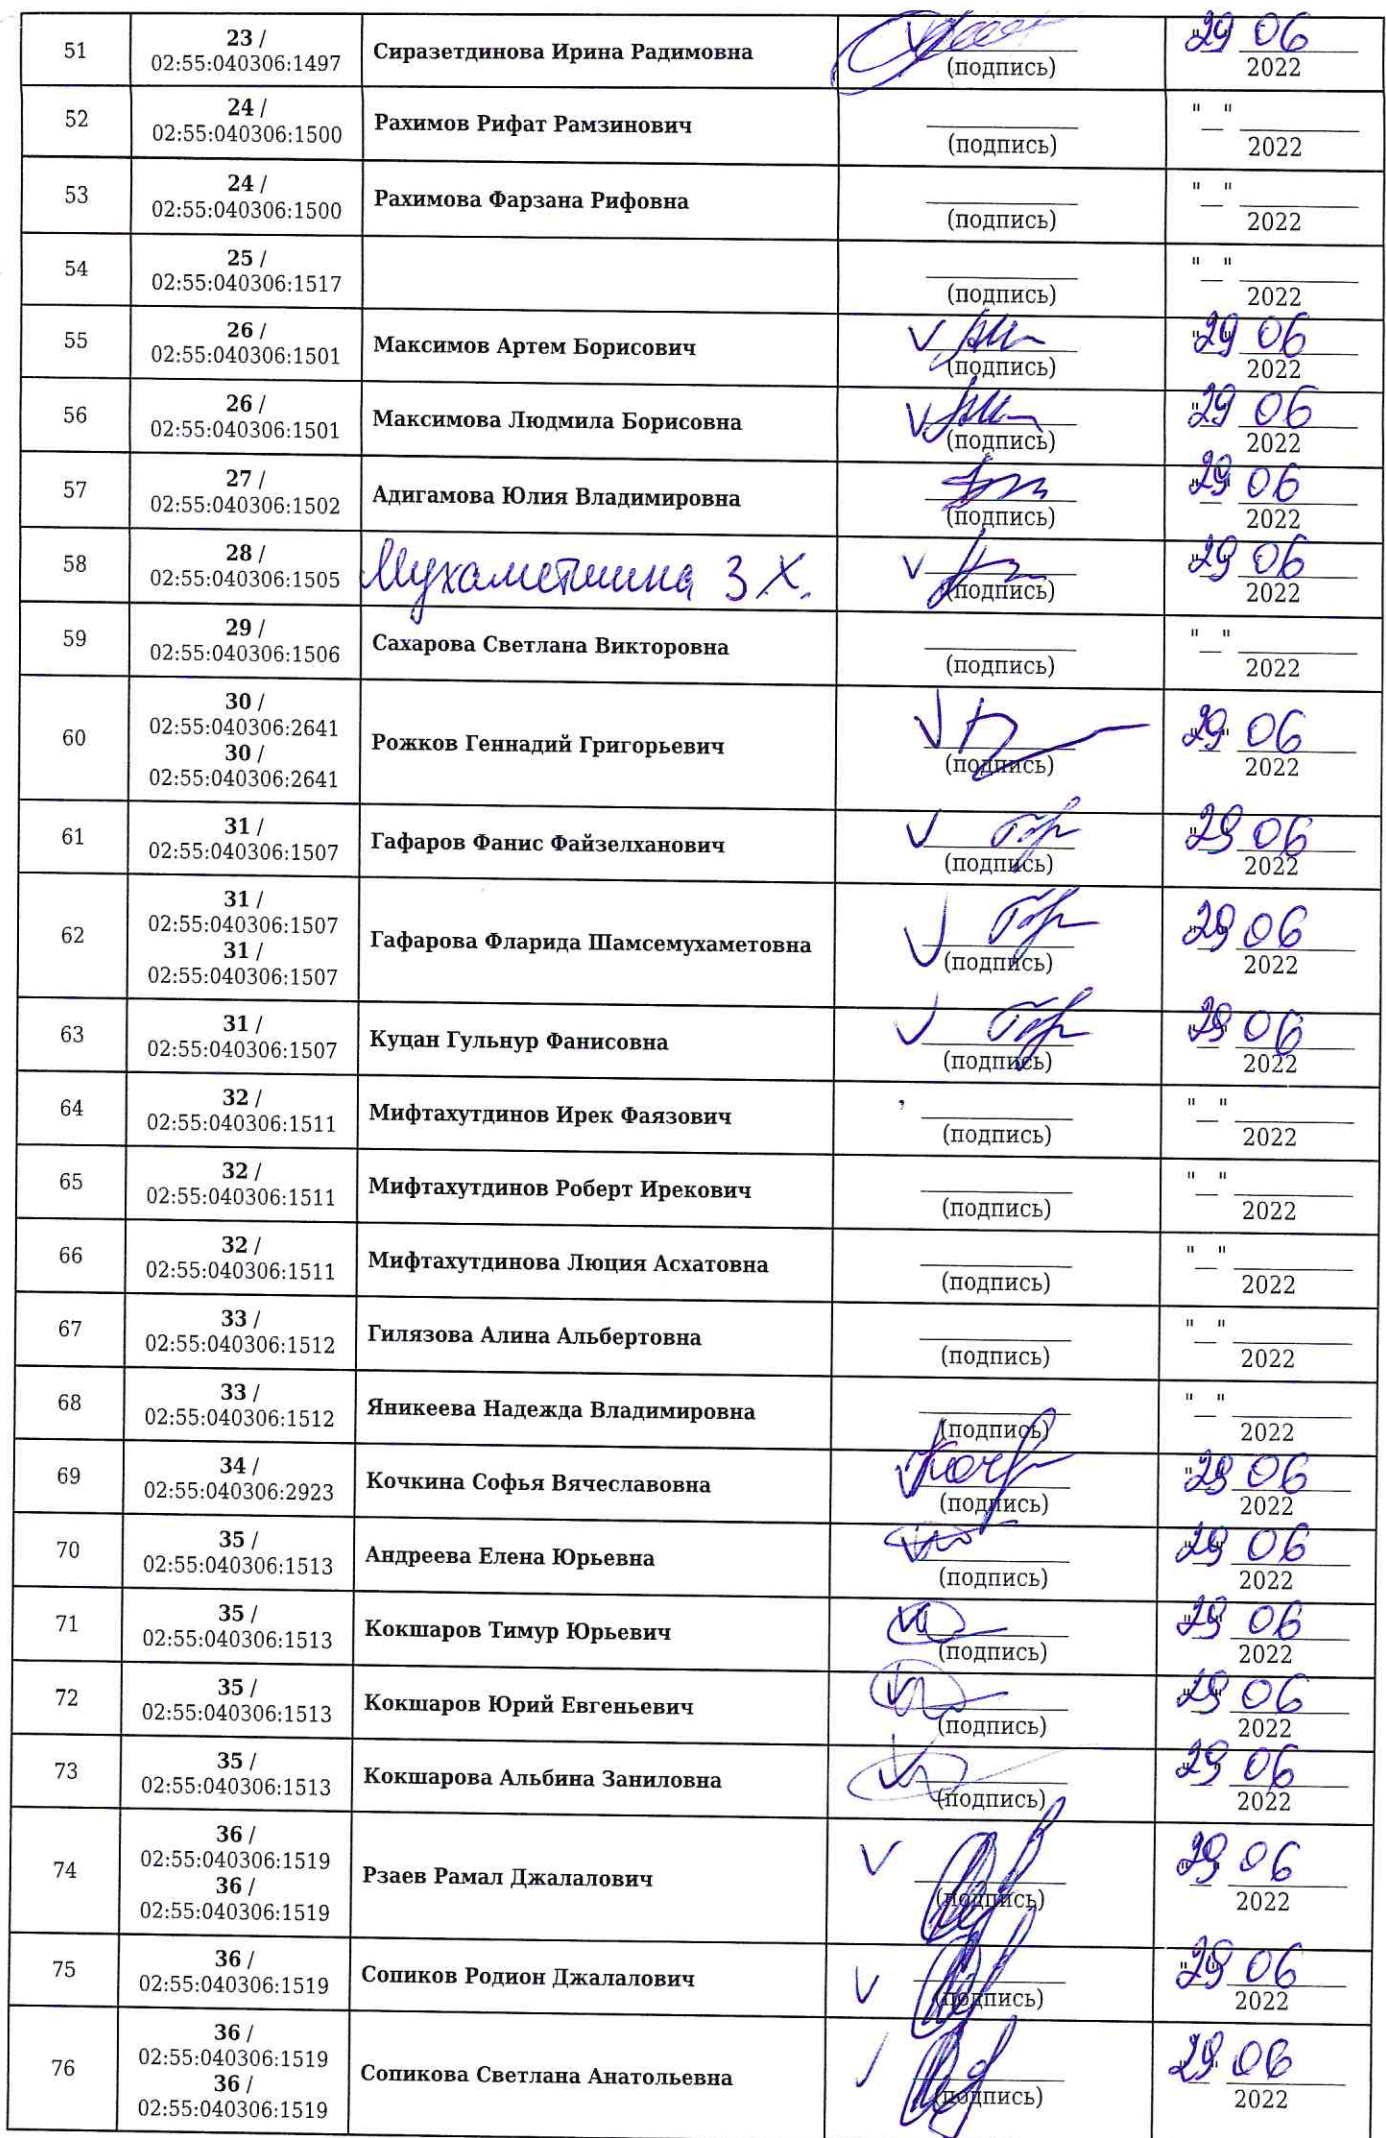 51
23 /
02:55:040306:1497
Сиразетдинова Ирина Радимовна
(подпись)
"29" 06
2022
52
24 /
02:55:040306:1500
Рахимов Рифат Рамзинович
(подпись)
"__"
2022
53
24 /
02:55:040306:1500
Рахимова Фарзана Рифовна
(подпись)
"__"
2022
54
25 /
02:55:040306:1517
(подпись)
"__"
2022
55
26 /
02:55:040306:1501
Максимов Артем Борисович
(подпись)
"29" 06
2022
56
26 /
02:55:040306:1501
Максимова Людмила Борисовна
(подпись)
"29" 06
2022
57
27 /
02:55:040306:1502
Адигамова Юлия Владимировна
(подпись)
"29" 06
2022
58
28 /
02:55:040306:1505
Мухаметшина З Х.
(подпись)
"29" 06
2022
59
29 /
02:55:040306:1506
Сахарова Светлана Викторовна
(подпись)
"__"
2022
60
30 /
02:55:040306:2641
30 /
02:55:040306:2641
Рожков Геннадий Григорьевич
(подпись)
"29" 06
2022
61
31 /
02:55:040306:1507
Гафаров Фанис Файзелханович
(подпись)
"29" 06
2022
62
31 /
02:55:040306:1507
31 /
02:55:040306:1507
Гафарова Фларида Шамсемухаметовна
(подпись)
"29" 06
2022
63
31 /
02:55:040306:1507
Куцан Гульнур Фанисовна
(подпись)
"29" 06
2022
64
32 /
02:55:040306:1511
Мифтахутдинов Ирек Фаязович
(подпись)
"__"
2022
65
32 /
02:55:040306:1511
Мифтахутдинов Роберт Ирекович
(подпись)
"__"
2022
66
32 /
02:55:040306:1511
Мифтахутдинова Люция Асхатовна
(подпись)
"__"
2022
67
33 /
02:55:040306:1512
Гилязова Алина Альбертовна
(подпись)
"__"
2022
68
33 /
02:55:040306:1512
Яникеева Надежда Владимировна
(подпись)
"__"
2022
69
34 /
02:55:040306:2923
Кочкина Софья Вячеславовна
(подпись)
"29" 06
2022
70
35 /
02:55:040306:1513
Андреева Елена Юрьевна
(подпись)
"29" 06
2022
71
35 /
02:55:040306:1513
Кокшаров Тимур Юрьевич
(подпись)
"29" 06
2022
72
35 /
02:55:040306:1513
Кокшаров Юрий Евгеньевич
(подпись)
"29" 06
2022
73
35 /
02:55:040306:1513
Кокшарова Альбина Заниловна
(подпись)
"29" 06
2022
74
36 /
02:55:040306:1519
36 /
02:55:040306:1519
Рзаев Рамал Джалалович
(подпись)
"29" 06
2022
75
36 /
02:55:040306:1519
Сопиков Родион Джалалович
(подпись)
"29" 06
2022
76
36 /
02:55:040306:1519
36 /
02:55:040306:1519
Сопикова Светлана Анатольевна
(подпись)
"29" 06
2022